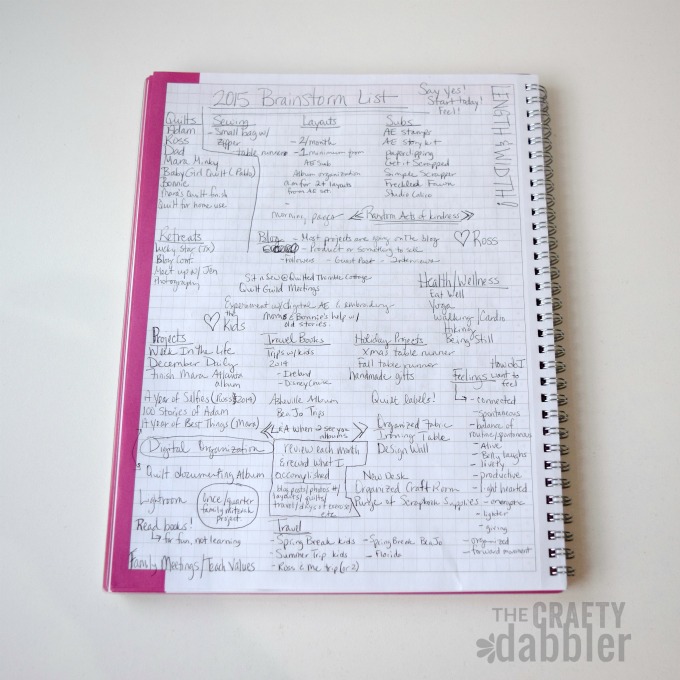 2015 Brainstorm List
Say Yes!
Start today!
Feel!
LENGTH & WIDTH!
Quilts
Adam
Ross
Dad
Mara Minky
Baby Girl Quilt (Pablo)
Bonnie
Mara's Quilt finish
Quilt for home use
Sewing
- Small bag w/
zipper
table runner
Layouts
- 2/month
- 1 minimum from
AE Sub
Album organization
aim for 2+ layouts
from AE set.
Subs
AE stamps
AE story kit
paperclipping
Get it Scrapped
Simple Scrapper
Freckled Fawn
Studio Calico
morning pages
Random Acts of kindness
Retreats
Lucky Star (TX)
Blog Conf.
Meet up w/ Jen
Photography
Blog - Most projects are going on the blog
- Product or Something to sell
- followers - Guest Post - Interviews
♡ Ross
Sit n Sew @ Quilted Thimble Cottage
Quilt Guild Meetings
Experiment w/ digital AE & embroidery
Mom's & Bonnie's help w/
old stories
♡ the
Kids
Health/Wellness
Eat Well
Yoga
Walking/Cardio
Hiking
Being Still
Projects
Week In the Life
December Daily
Finish Mara Atlanta
album
A year of Selfies (Ross 2014)
100 Stories of Adam
A year of Best Things (Mara)
Travel Books
Trips w/ kids
2014
- Ireland
- Disney Cruise
Asheville Album
BeaJo Trips
Holiday Projects
Xmas table runner
Fall table runner
handmade gifts
Quilt Labels!
How do I
Feelings want to
feel
connected
- Spontaneous
- balance of
routine/spontaneous
- Alive
- Belly laughs
- lively
- productive
- light hearted
- energetic
- lighter
- giving
- organized
- forward movement
L&A When I see you
albums
Organized fabric
Ironing Table
Design Wall
Digital Organization
review each month
& record what I
accomplished
blog posts/photos #/
layouts/quilts/
travel/days of exercise/
etc.
Quilt documenting Album
New Desk
Organized Craft Room
Purge of Scrapbook Supplies
Lightroom
once/quarter
family
project
Read books!
for fun, not learning
Travel
- Spring Break kids
- Summer Trip kids
- Ross & me trip (or 2)
- Spring Break BeaJo
- Florida
Family Meetings/Teach Values
THE CRAFTY
dabbler